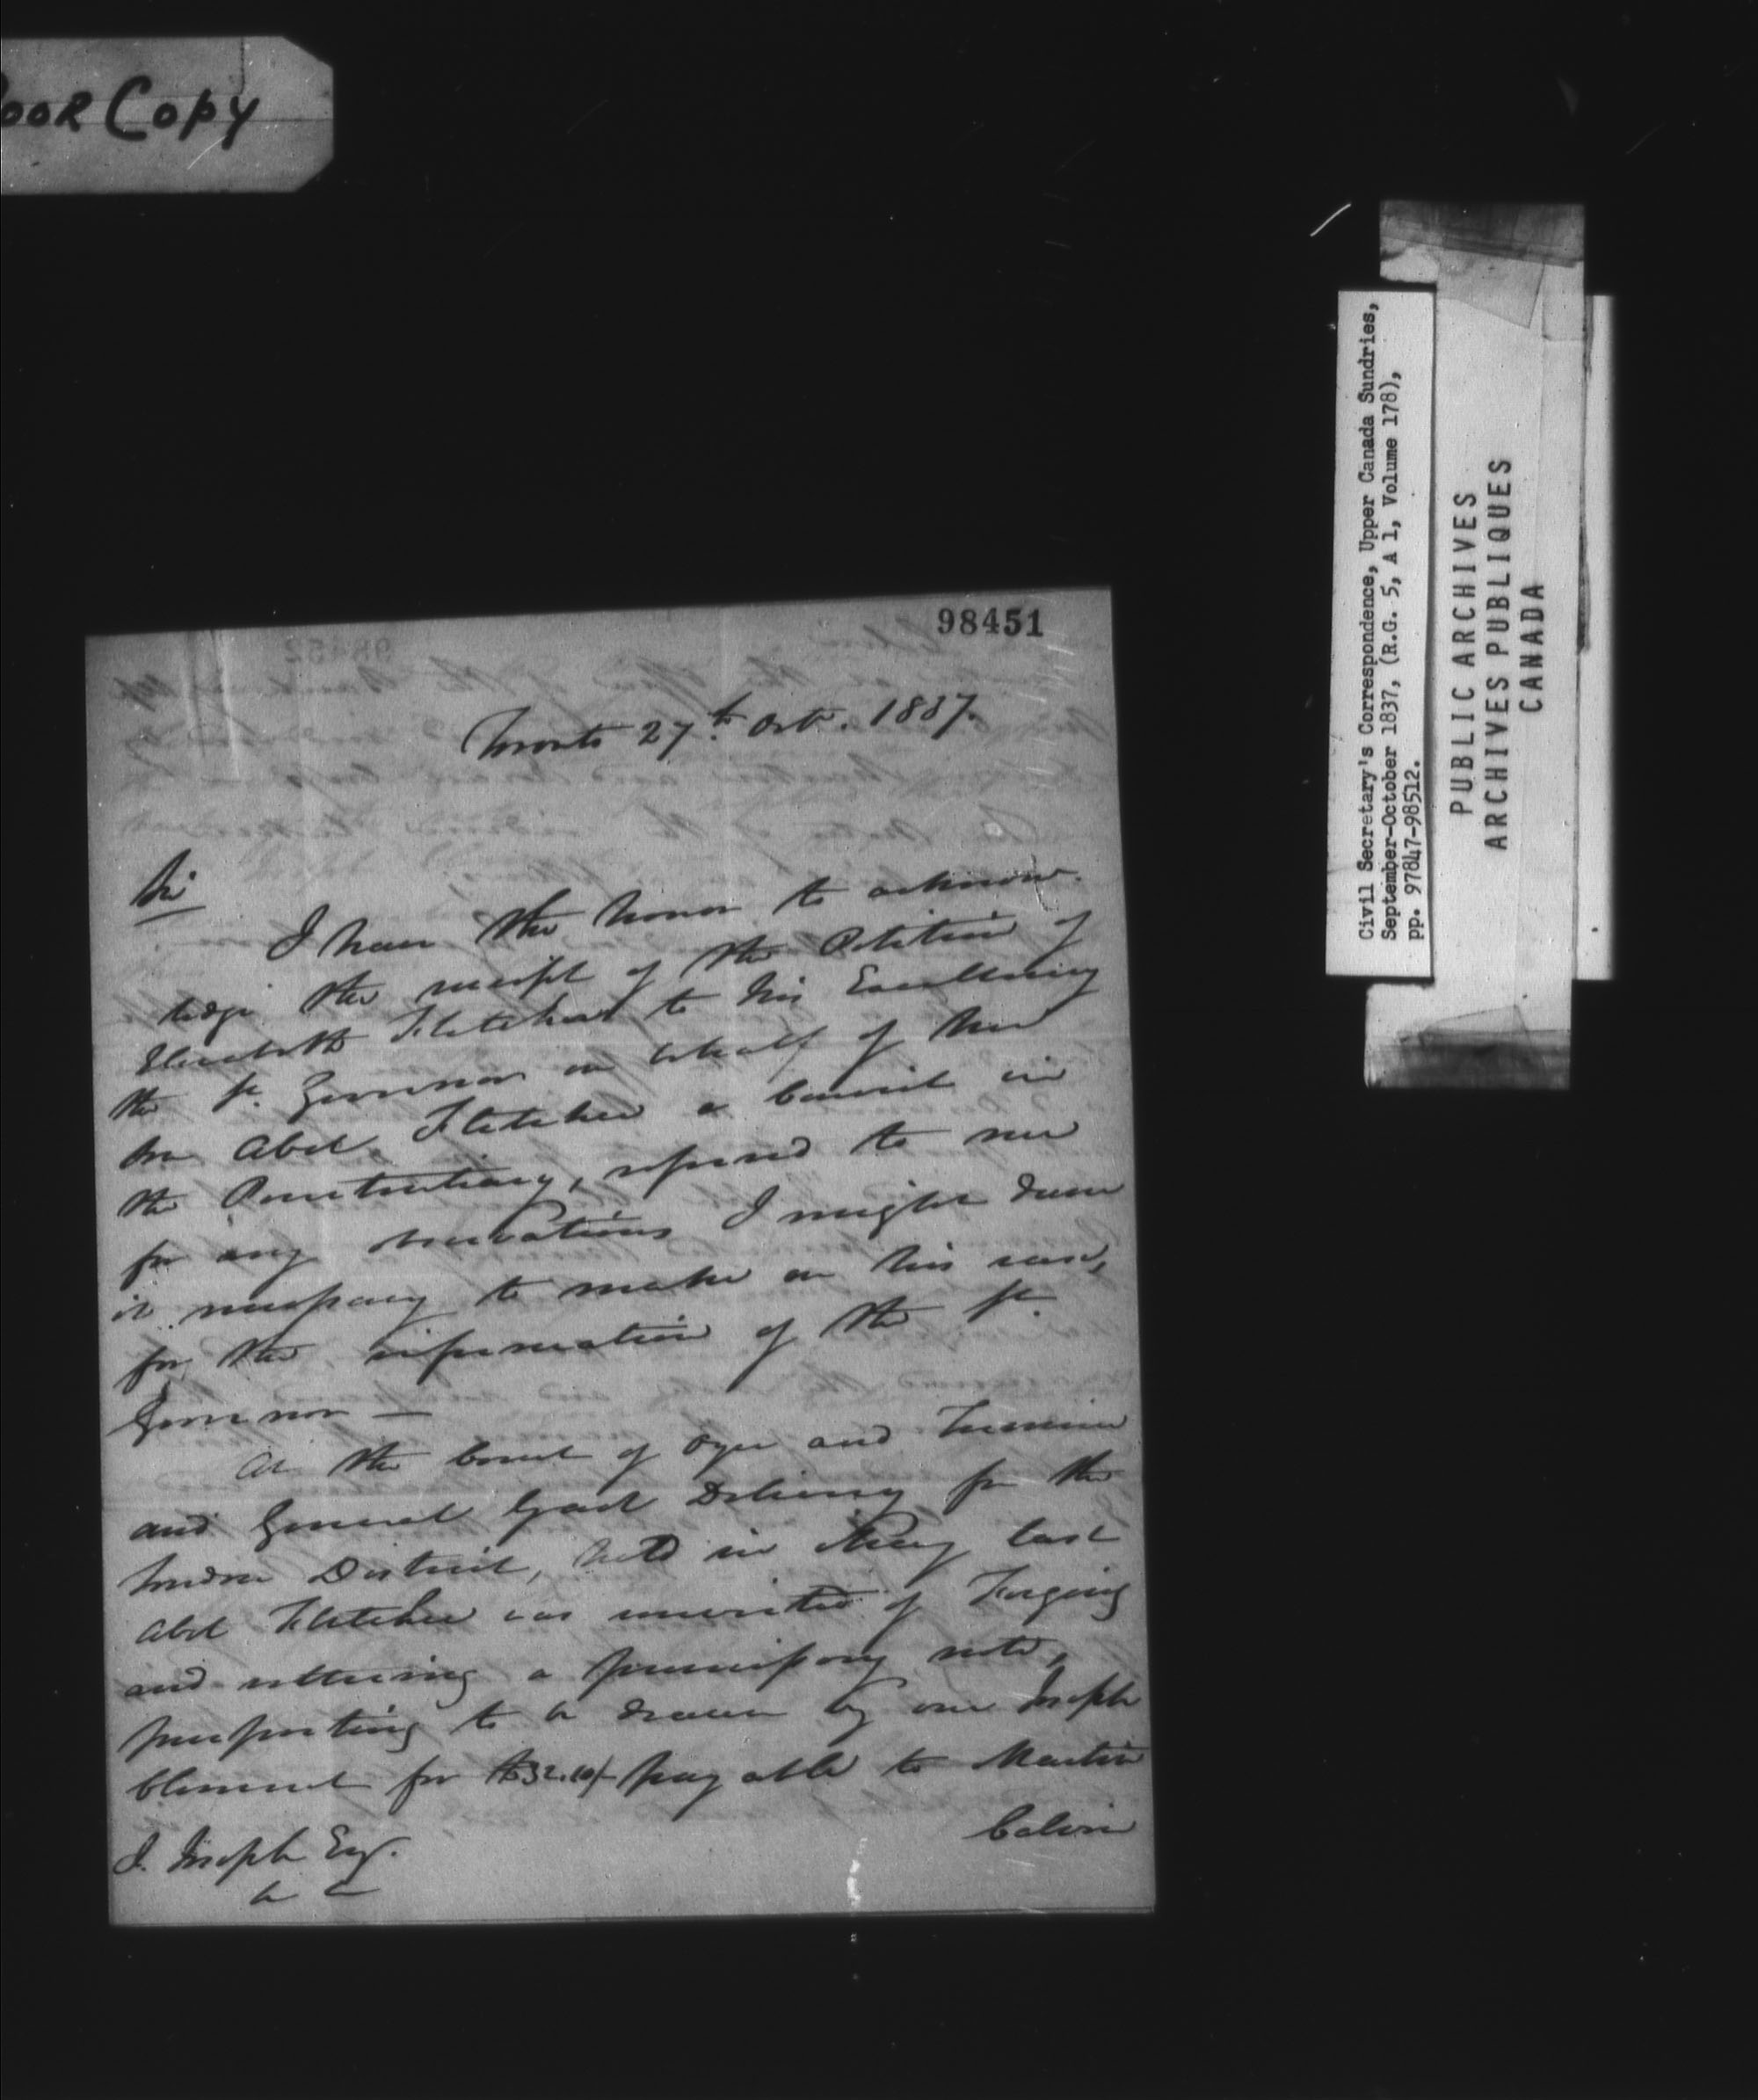 Poor Copy
98451
Toronto 27th Octr. 1837.
Sir
I have the honor to acknow-
ledge the receipt of the Petition of
Elizabeth Fletcher to His Excellency
the Lt. Governor on behalf of her
son Abel Fletcher a Convict in
the Penitentiary, referred to me
for any observations I might deem
it necessary to make on his case,
for the information of the Lt.
Governor —
At the Court of Oyer and Terminer
and General Gaol Delivery for the
London District, held in May last
Abel Fletcher was convicted of Forging
and uttering a promissory note,
purporting to be drawn by one Joseph
Clement for £32.10/- payable to Martin
Calvin
J. Joseph Esq.
Civil Secretary's Correspondence, Upper Canada Sundries,
September-October 1837, (R.G. 5, A 1, Volume 178),
pp. 97847-98512.
PUBLIC ARCHIVES
ARCHIVES PUBLIQUES
CANADA